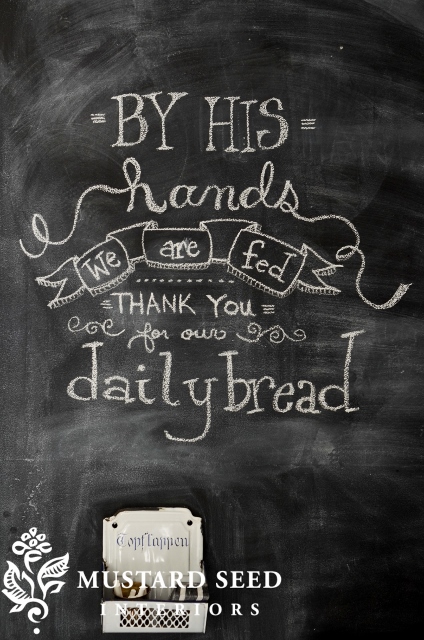 BY HIS
hands
We are fed
THANK YOU
for our
daily bread
Topflappen
MUSTARD SEED
INTERIORS